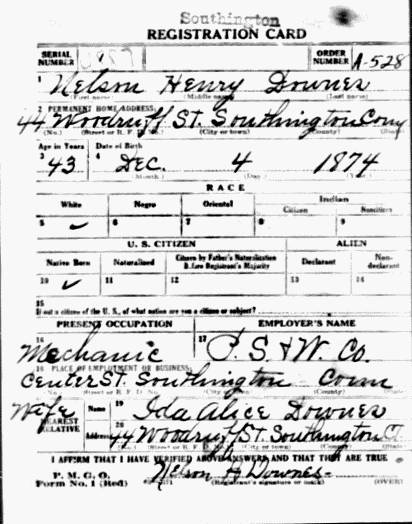 Southington
REGISTRATION CARD
SERIAL NUMBER
ORDER NUMBER A-528
1 Nelson Henry Downes
(First name) (Middle name) (Last name)
2 PERMANENT HOME ADDRESS:
44 Woodruff St. Southington Conn
(No.) (Street or R. F. D. No.) (City or town) (County) (State)
Age in Years Date of Birth
3 43 4 Dec. 4 1874
(Month.) (Day.) (Year.)
RACE
White Negro Oriental Indian
Citizen Noncitizen
5 ✓ 6 7 8 9
U. S. CITIZEN ALIEN
Native Born Naturalized Citizen by Father's Naturalization Before Registrant's Majority Declarant Non-declarant
10 ✓ 11 12 13 14
15
If not a citizen of the U. S., of what nation are you a citizen or subject?
PRESENT OCCUPATION EMPLOYER'S NAME
16 Mechanic 17 P. S. & W. Co.
18 PLACE OF EMPLOYMENT OR BUSINESS:
Center St. Southington Conn
(No.) (Street or R. F. D. No.) (City or town) (County) (State)
Wife Name 19 Ida Alice Downes
NEAREST RELATIVE
Address 20 44 Woodruff St. Southington Ct
(No.) (Street or R. F. D. No.) (City or town) (County) (State)
I AFFIRM THAT I HAVE VERIFIED ABOVE ANSWERS AND THAT THEY ARE TRUE
P. M. G. O.
Form No. 1 (Red) Nelson H Downes
(Registrant's signature or mark) (OVER)